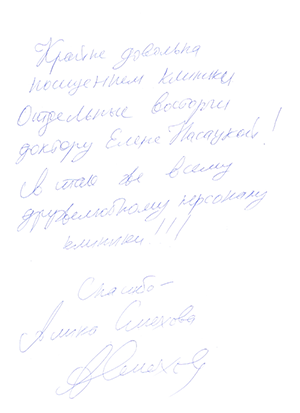 Крайне довольна
посещением клиники
Отдельные восторги
доктору Елене !
А так же всему
дружелюбному персоналу
клиники!!!
Спасибо –
Алина Смехова